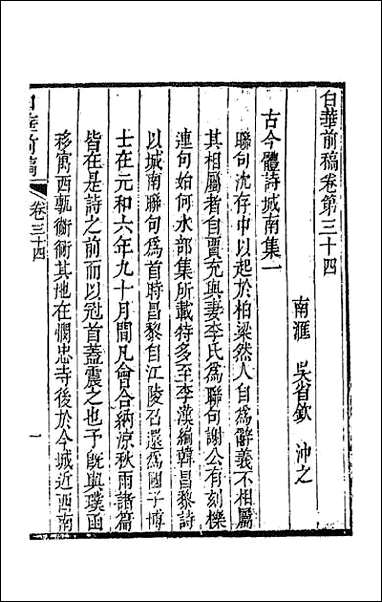 白華前稿卷第三十四
南滙 吳省欽 沖之
古今體詩城南集一
聯句沈存中以起於柏梁然人自爲辭義不相屬
其相屬者自賈充與妻李氏爲聯句謝公有刻櫟
連句始何水部集所載特多至李漢編韓昌黎詩
以城南聯句爲首時昌黎自江陵召還爲國子博
士在元和六年九十月間凡會合納凉秋雨諸篇
皆在是詩之前而以冠首蓋震之也予旣與璞函
移寓西甎衚衕其地在憫忠寺後於今城近西南
白華前稿
卷三十四
一